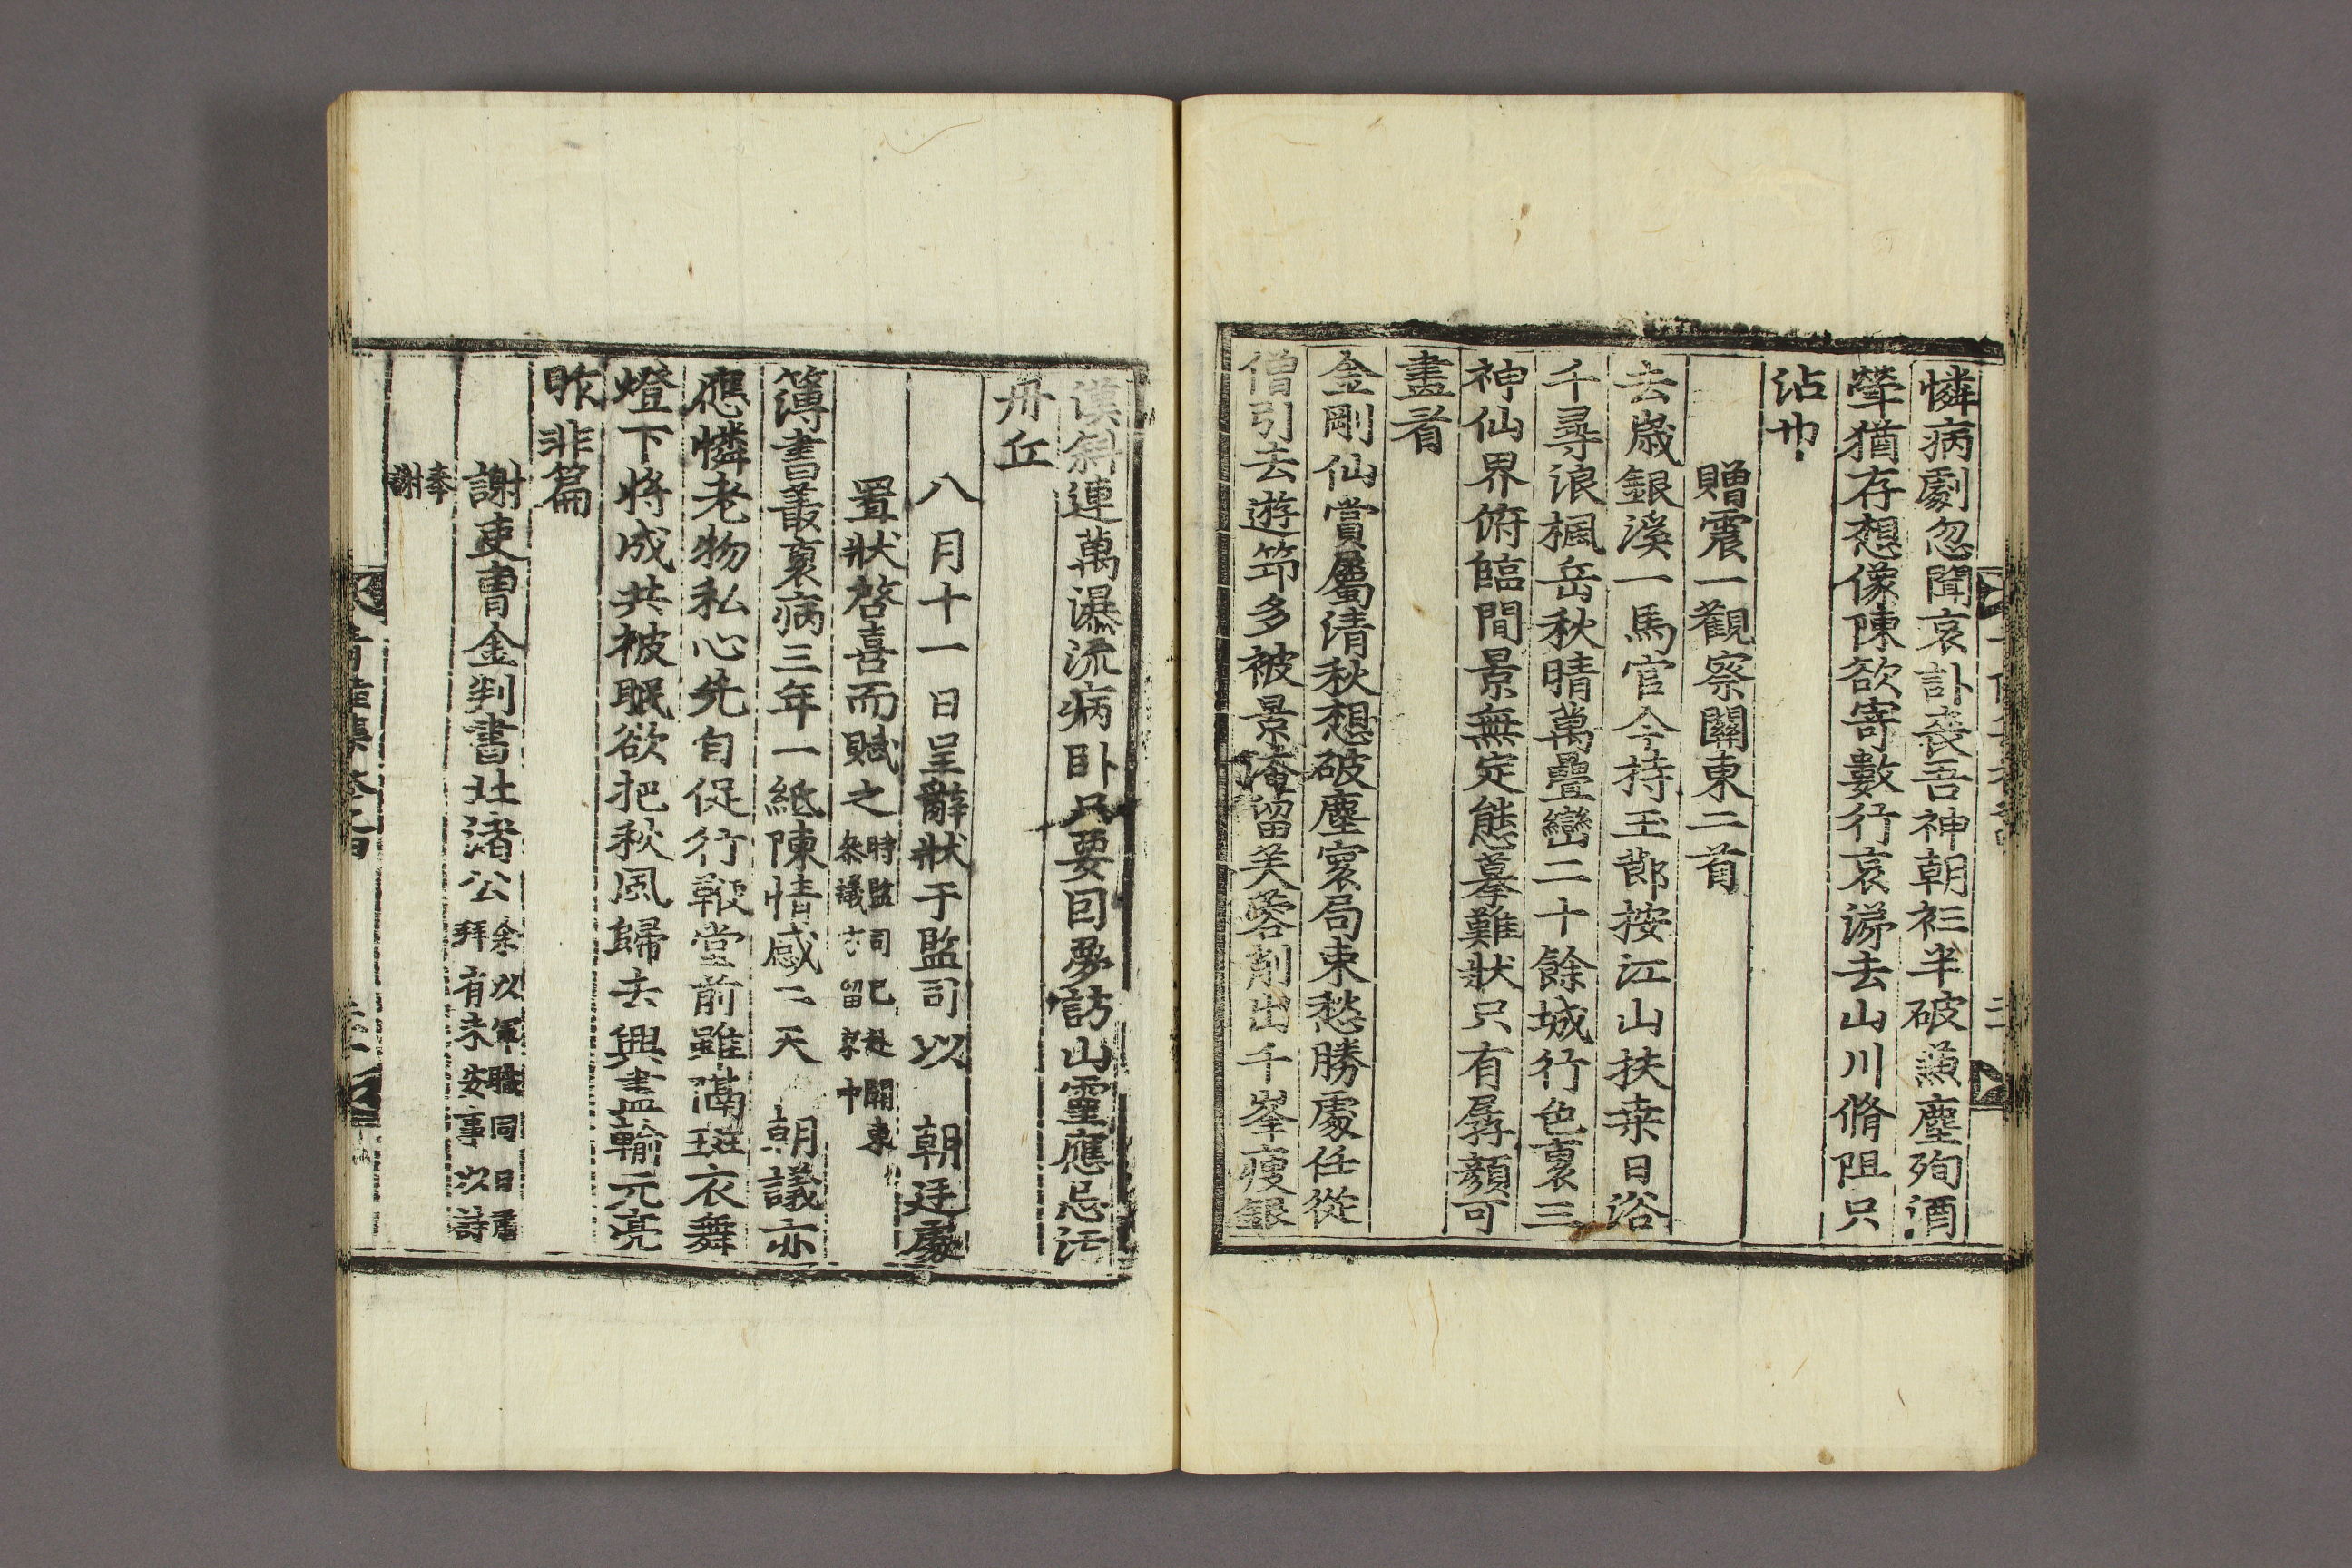 憐病劇忽聞哀訃喪吾神朝衫半破蒙塵殉酒
犖猶存想像陳欲寄數行哀涕去山川脩阻只
沾巾
贈震一觀察關東二首
去歲銀溪一馬官今持玉節按江山扶桒日浴
千尋浪楓岳秋晴萬疊巒二十餘城行色裏三
神仙界俯臨間景無定態摹難狀只有孱顔可
盡看
金剛仙賞屬清秋想破塵寰局束愁勝處任從
僧引去遊笻多被景淹留芙蓉削出千峯瘦銀
漢斜連萬瀑流病卧只要囙夣訪山靈應忌汚
丹丘
八月十一日呈辭狀于監司以 朝廷處
置狀啓喜而賦之時監司已赴關東
叅議方留京中
簿書叢裏病三年一紙陳情感二天 朝議亦
應憐老物私心先自促行鞭堂前雖滿斑衣舞
燈下將成共被眠欲把秋風歸去興盡輸元亮
昨非篇
謝吏曺金判書北渚公余以軍職同日肅
拜有未安事以詩
奉
謝